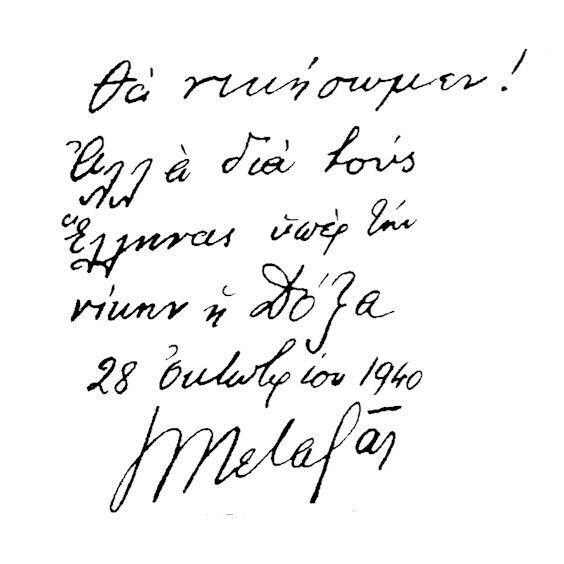 Θὰ νικήσωμεν!
Ἀλλὰ διὰ τοὺς
Ἕλληνας ὑπὲρ τὴν
νίκην ἡ Δόξα
28 Ὀκτωβρίου 1940
Μεταξᾶς